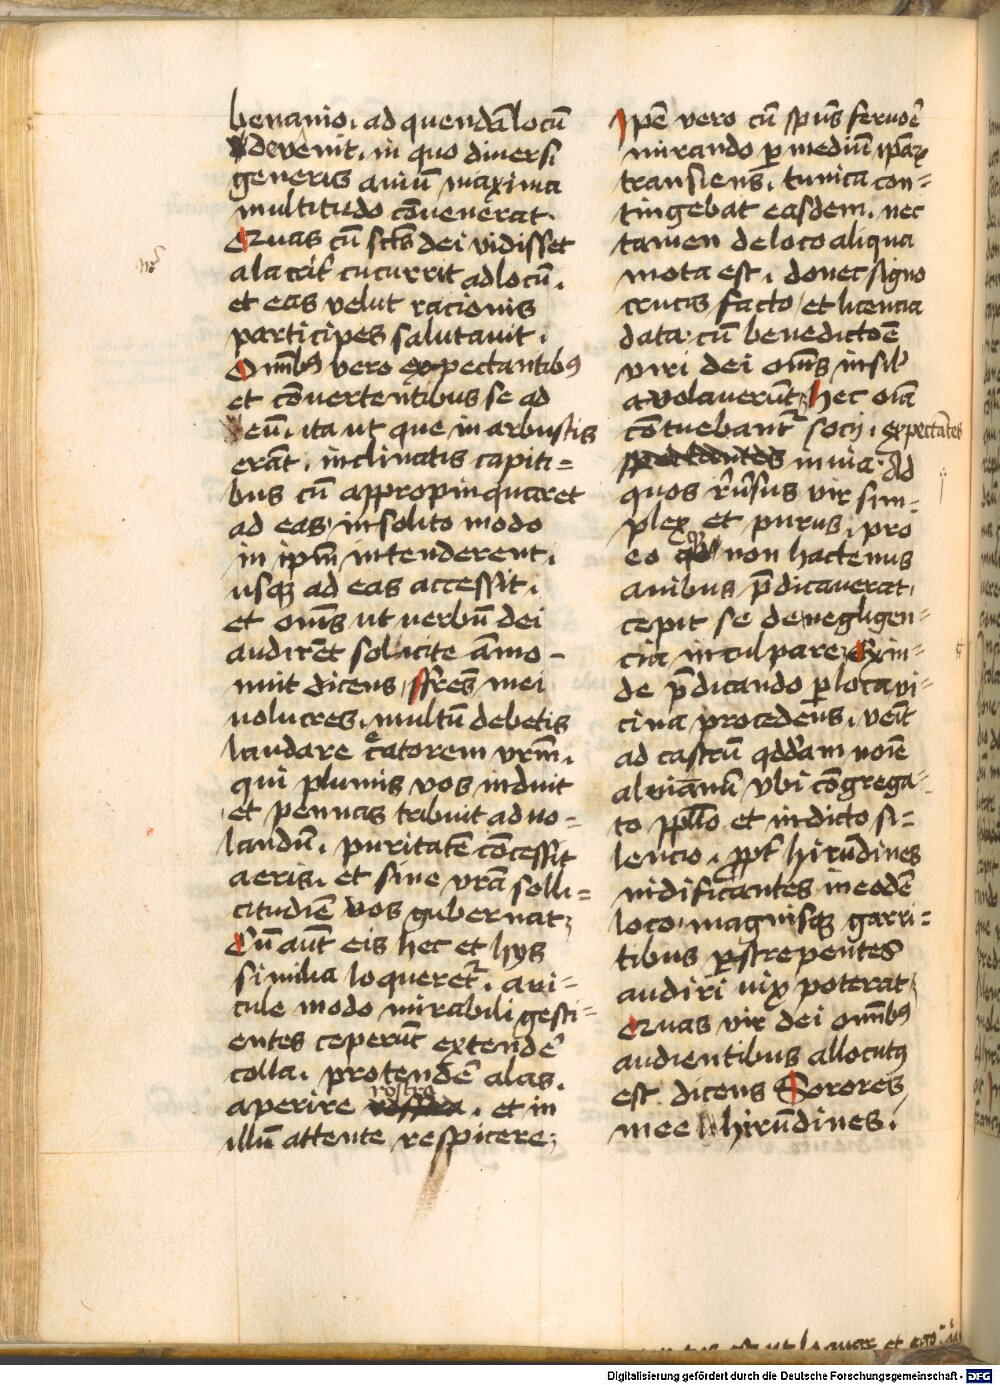 benanio. ad quendā locū
devenit. in quo diversi
generis aniū maxima
multitudo cōvenerat.
Quas cū sctūs dei vidisset
alacrit̓ cucurrit ad locū.
et eas velut racionis
participes salutauit.
Om̄ibꝯ vero expectantibꝯ
et cōvertentibus se ad
eū. ita ut que in arbustis
erāt. inclinatis capiti=
bus cū appropinquaret
ad eas insolito modo
in ipm̄ intenderent.
usqꝫ ad eas accessit.
et om̄s ut verbū dei
audirēt solicite āmo-
nuit dicens. ffr̄es mei
uolucres. multū debetis
laudare c̄atorem vrm̄.
qui plumis vos induit
et pennas tribuit ad uo=
landū. puritatē cōcessit
aeris. et sine vrā solli=
citudīe vos gubernat;
Cū aūt eis hec et hys
similia loqueret᷑. aui=
cule modo mirabili gesti=
entes ceperūt extende᷑
colla. protendē alas.
rostra
aperire . et in
illū attente respicere;
Ipē vero cū spūs fervoē
mirando ꝑ mediū ipāꝝ
transiens. tunica con=
tingebat easdem. nec
tamen de loco aliqua
mota est. donec signo
crucis facto et licencia
data. cū benedictoē
viri dei om̄s insil̓
avolauerūt; Hec oīa
cōtuebant᷑ socij. expectātes
in uia. Ad
quos rūsus vir sim=
plex et purus. pro
eo non hactenus
auibus p̄dicauerat.
cepit se de negligen=
cia inculpare; Exin=
de p̄dicando ꝑ loca vi=
cina procedens. veīt
ad castrū qddam noīe
aluianū vbi cōgrega=
to ppl̄o et indicto si=
lencio. ꝓpt̓ hirūdines
nidificantes in eodē
loco. magnisqꝫ garri=
tibus ꝑstrepentes
audiri uix poterat;
Quas vir dei om̄ibꝯ
audientibus allocutꝯ
est dicens Sorores
mee hirūdines.